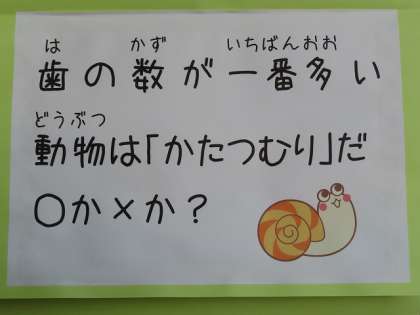 は かず いちばんおお
歯の数が一番多い
どうぶつ
動物は「かたつむり」だ
○か×か？